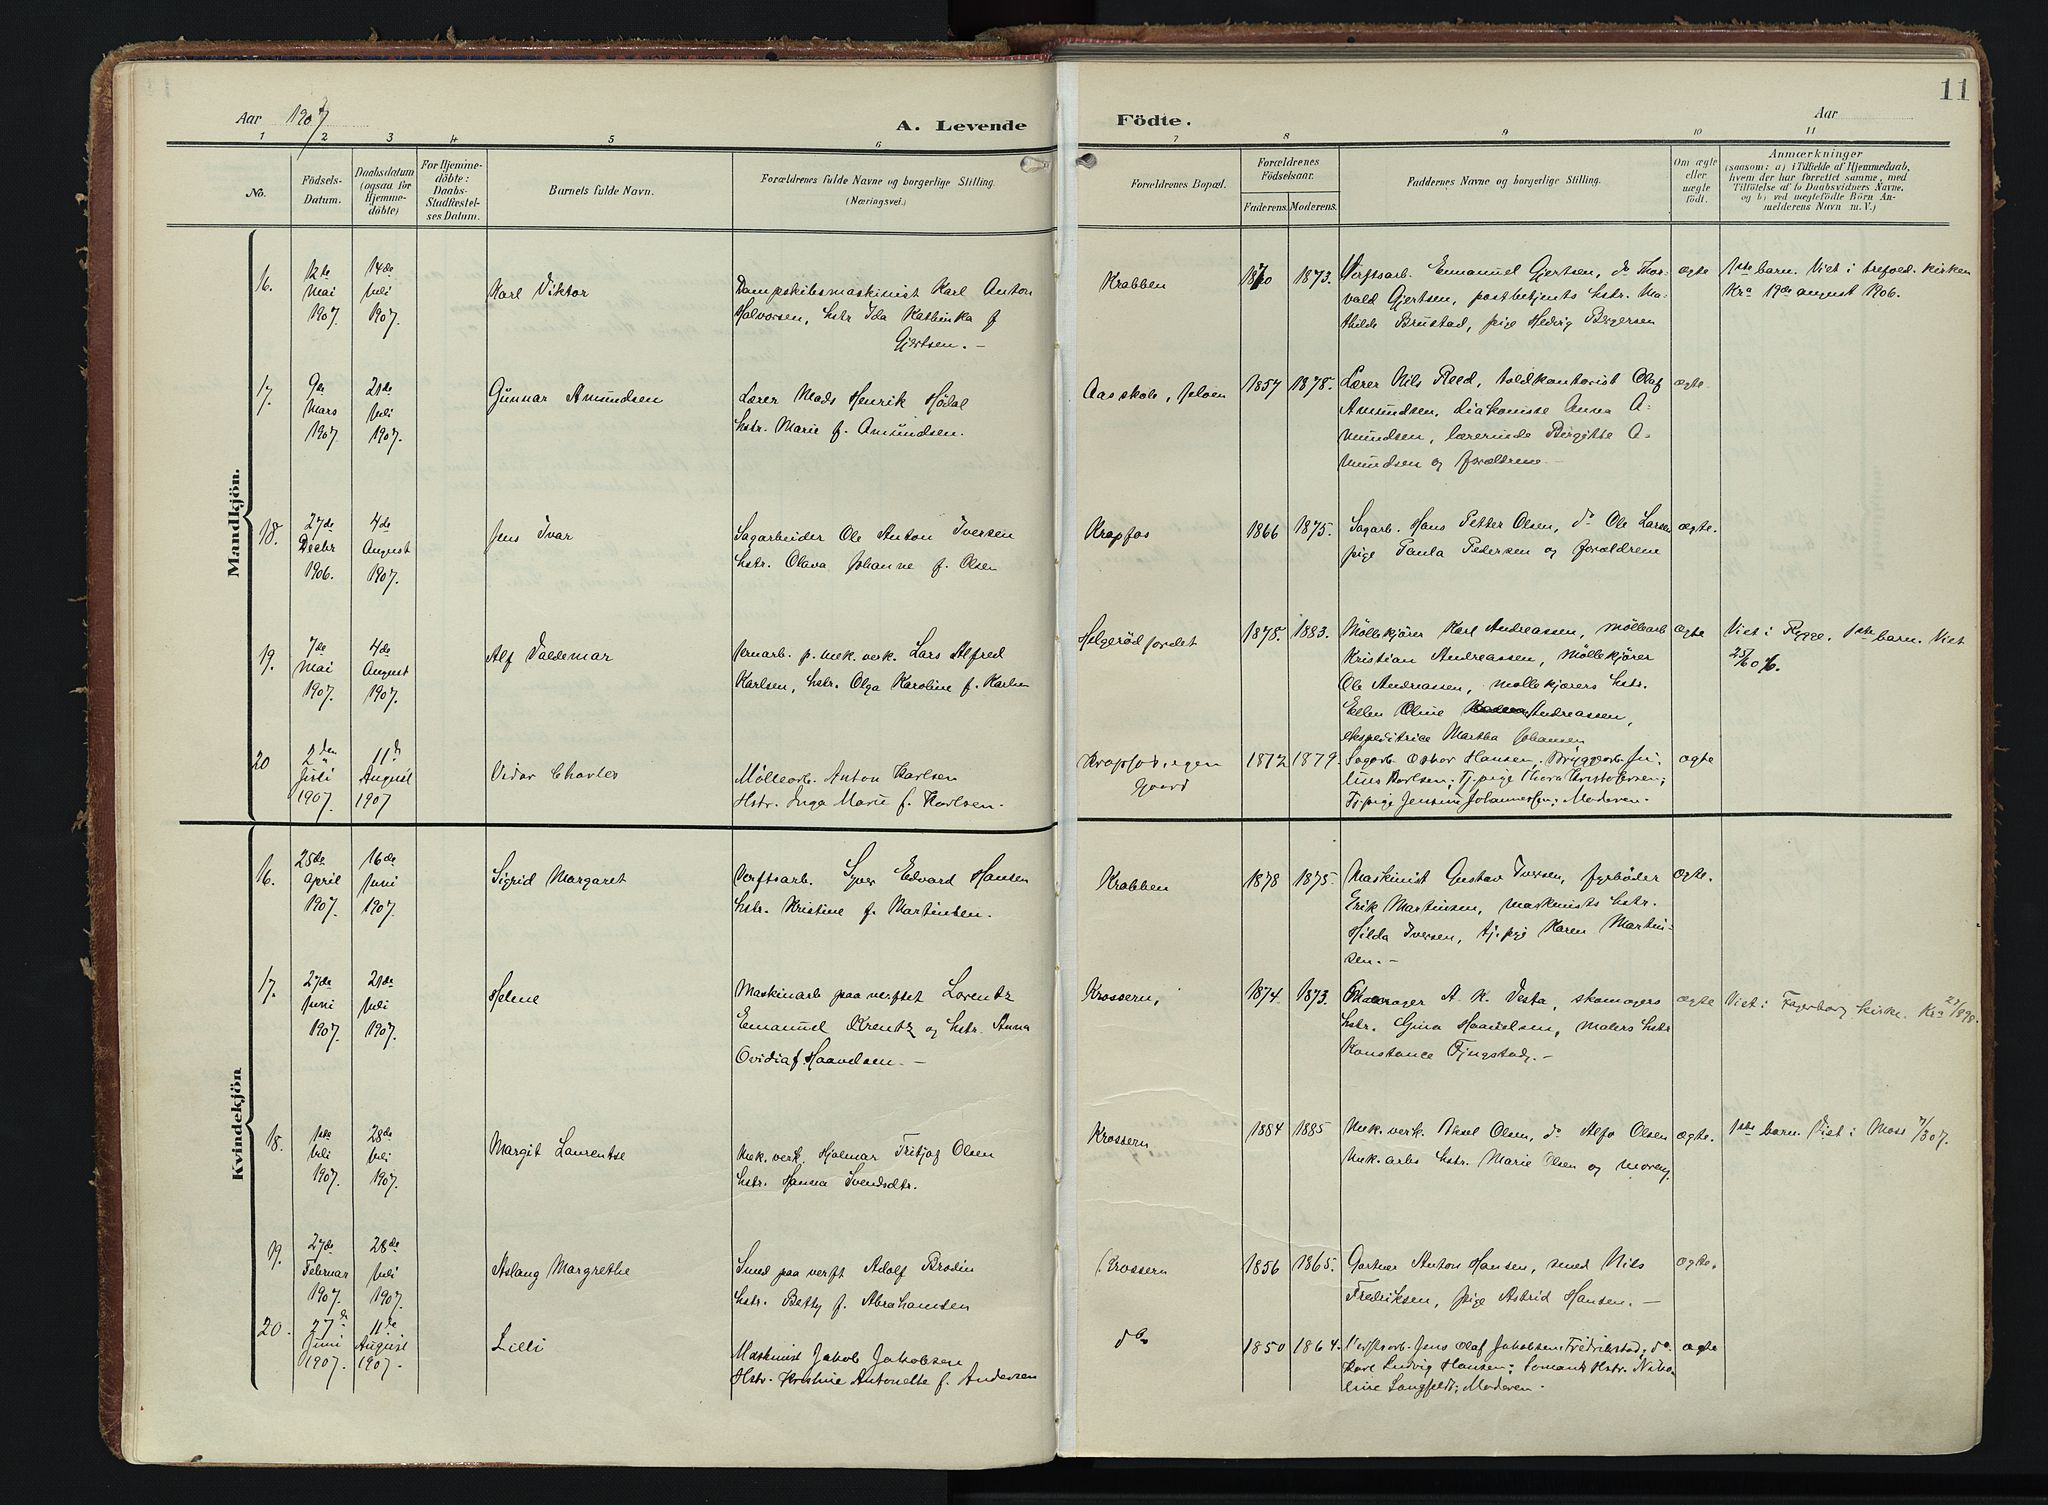 11
Aar 1907
A. Levende Födte.
Aar
1 2 3 4 5 6 7 8 9 10 11
No.
Födsels-
Datum.
Daabsdatum
(ogsaa for
Hjemme-
döbte)
For Hjemme-
döbte:
Daabs-
Stadfæstel-
ses Datum.
Barnets fulde Navn.
Forældrenes fulde Navne og borgerlige Stilling.
(Næringsvei.)
Forældrenes Bopæl.
Forældrenes
Födselsaar.
Faderens. Moderens.
Faddernes Navne og borgerlige Stilling.
Om ægte
eller
uægte
födt.
Anmærkninger
(saasom: a) i Tilfælde af Hjemmedaab,
hvem der har forrettet samme, med
Tilföielse af to Daabsvidners Navne.
og b) ved uægtefödte Börn An-
melderens Navn m. V.)
Mandkjön.
16.
12te
Mai
1907.
14de
Juli
1907.
Karl Viktor
Dampskibsmaskinist Karl Anton
Halvorsen, hstr Ida Kathinka f
Gjertsen. —
Krabben
1870 1873.
Verftsarb. Emanuel Gjertsen, do Thor-
vald Gjertsen, postbetjents hstr. Ma-
thilde Brustad, pige Hedvig Bergersen
ægte
1ste barn. Viet i trefold. kirken
Kra 19de august 1906.
17.
9de
Mars
1907.
21de
Juli
1907.
Gunnar Amundsen
Lærer Mads Henrik Hödal
hstr. Marie f. Amundsen.
Aasskole, Jelöen
1857 1878.
Lærer Nils Reed, toldkontorist Olaf
Amundsen, diakonisse Anna A-
mundsen, lærerinde Birgitte A-
mundsen og forældrene —
ægte.
18.
27de
Decbr
1906.
4de
August
1907.
Jens Ivar
Sagarbeider Ole Anton Iversen
hstr. Olava Johanne f. Olsen
Krapfos
1866 1875.
Sagarb. Hans Petter Olsen, do Ole Larsen
pige Paula Pedersen og forældrene
ægte.
19.
7de
Mai
1907.
4de
August
1907.
Alf Valdemar
Jernarb. p. mek. verk. Lars Alfred
Karlsen, hstr. Olga Karoline f. Karlsen
Helgerödfordet
1878. 1883.
Möllekjörer Karl Andreassen, möllearb
Kristian Andreassen, möllekjörer
Ole Andreassen, möllekjörers hstr.
Ellen Oline Andreassen,
ekspeditrice Martha Johansen
ægte
Viet i Rygge. 1ste barn. Viet
20
2den
Juli
1907.
11de
August
1907
Vidar Charles
Möllearb. Anton Karlsen
Hstr. Inga Marie f. Karlsen.
Krapfos, egen
Gaard
1872 1879.
Sagarb. Oskar Hansen, Bryggearb. Ju-
lius Karlsen; Tj.pige Thora Kristoffersen;
Tj.pige Jensine Johannessen; Moderen.
ægte
Kvindekjön
16.
25de
April
1907.
16de
Juni
1907.
Sigrid Margaret
Verftsarb. Syver Edvard Hansen
hstr. Kristine f. Martinsen.
Krabben
1878 1875.
Maskinist Gustav Iversen, fyrböder
Erik Martinsen, maskinists hstr.
Hilda Iversen, tj. pige Karen Martin-
sen. —
ægte.
17.
27de
Juni
1907.
21de
Juli
1907.
Helene
Maskinarb paa verftet Lorentz
Emanuel Krentz og hstr. Anna
Ovidia f. Haavelsen. —
Krossern,
1874 1873.
A. K. Vesta, skomagers
hstr. Gina Haavelsen, malers hstr
Konstance Tingstad. —
ægte
Viet i Fagerborg kirke. Kra
18.
1ste
Juli
1907.
28de
Juli
1907.
Margit Laurentse
Mek. verk. Hjalmar Fritjof Olsen
hstr. Hanna Svendsdtr.
Krossern
1884 1885
Mek. verk. Aksel Olsen, do Alfo Olsen
Mek. arbs hstr. Marie Olsen og moren.
ægte.
1ste barn. Viet i Moss 7/3 07.
19.
27de
Februar
1907.
28de
Juli
1907.
Aslaug Margrethe
Smed paa verft Adolf Brodin
hstr. Betty f. Abrahamsen
Krossern
1856 1865.
Gartner Anton Hansen, smed Nils
Fredriksen, pige Astrid Hansen. —
ægte.
20.
27de
Juni
1907.
11de
August
1907.
Lilli
Maskinist Jakob Jakobsen
Hstr. Kristine Antonette f. Andersen
do
1850 1864.
Verftsarb. Jens Olaf Jakobsen, Fredrikstad; do
Karl Ludvig Hansen; Sömands Hstr. Niko-
line Langfeldt; Moderen.
ægte